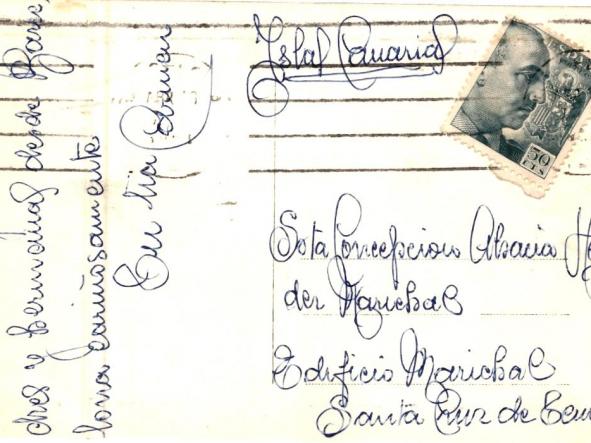 dres y hermanas desde Barce
lona cariñosamente
Tu tia Carmen
Islas Canarias
50
CTS
Srta Concepcion Abacia He
der Marichal
Edificio Marichal
Santa Cruz de Tene